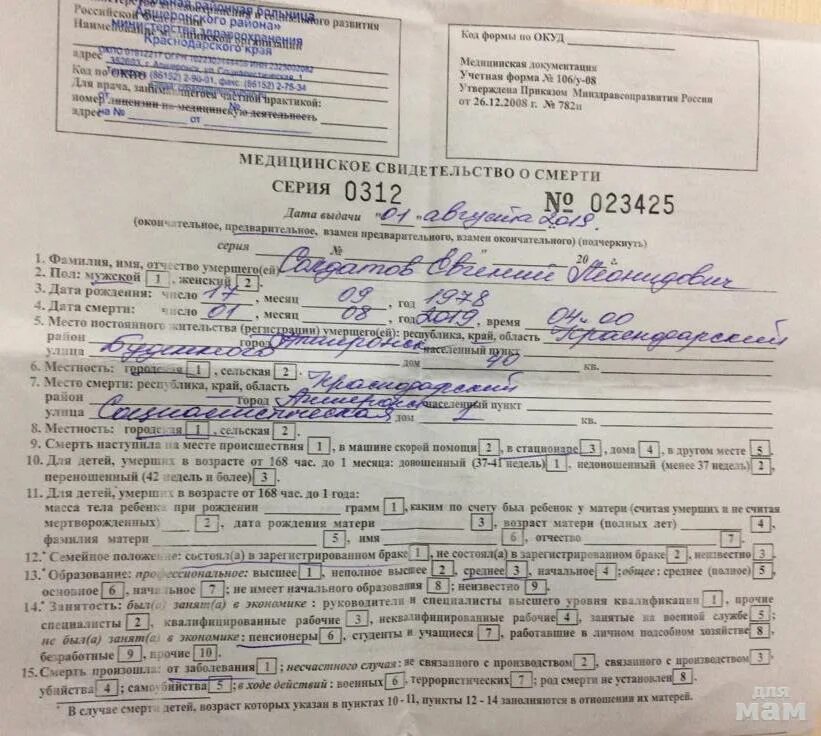 районная больница
Министерство здравоохранения и социального развития
Апшеронского района»
Российской Федерации
министерства здравоохранения
Наименование медицинской организации
Краснодарского края
адрес
Код по ОКПО
Для врача, занимающегося частной практикой:
номер лицензии на медицинскую деятельность №
адрес
на № от
Код формы по ОКУД
Медицинская документация
Учетная форма № 106/у-08
Утверждена Приказом Минздравсоцразвития России
от 26.12.2008 г. № 782н
МЕДИЦИНСКОЕ СВИДЕТЕЛЬСТВО О СМЕРТИ
СЕРИЯ 0312 № 023425
Дата выдачи "01" августа 2019.
(окончательное, предварительное, взамен предварительного, взамен окончательного) (подчеркнуть)
серия № " " 20 г.
1. Фамилия, имя, отчество умершего(ей) Солдатов Евгений Леонидович
2. Пол: мужской 1, женский 2.
3. Дата рождения: число 17, месяц 09, год 1978
4. Дата смерти: число 01, месяц 08, год 2019, время 04-00
5. Место постоянного жительства (регистрации) умершего(ей): республика, край, область Краснодарский
район город Апшеронск населенный пункт
улица Буденного дом 40 кв.
6. Местность: городская 1, сельская 2.
7. Место смерти: республика, край, область Краснодарский
район город Апшеронск населенный пункт
улица Социалистическая дом 1 кв.
8. Местность: городская 1, сельская 2.
9. Смерть наступила на месте происшествия 1, в машине скорой помощи 2, в стационаре 3, дома 4, в другом месте 5
10. Для детей, умерших в возрасте от 168 час. до 1 месяца: доношенный (37-41 недель) 1, недоношенный (менее 37 недель) 2,
переношенный (42 недель и более) 3.
11. Для детей, умерших в возрасте от 168 час. до 1 года:
масса тела ребенка при рождении грамм 1, каким по счету был ребенок у матери (считая умерших и не считая
мертворожденных) 2, дата рождения матери 3, возраст матери (полных лет) 4,
фамилия матери 5, имя 6, отчество 7.
12.* Семейное положение: состоял(а) в зарегистрированном браке 1, не состоял(а) в зарегистрированном браке 2, неизвестно 3.
13.* Образование: профессиональное: высшее 1, неполное высшее 2, среднее 3, начальное 4; общее: среднее (полное) 5,
основное 6, начальное 7; не имеет начального образования 8; неизвестно 9.
14.* Занятость: был(а) занят(а) в экономике : руководители и специалисты высшего уровня квалификации 1, прочие
специалисты 2, квалифицированные рабочие 3, неквалифицированные рабочие 4, занятые на военной службе 5;
не был(а) занят(а) в экономике: пенсионеры 6, студенты и учащиеся 7, работавшие в личном подсобном хозяйстве 8,
безработные 9, прочие 10.
15. Смерть произошла: от заболевания 1; несчастного случая: не связанного с производством 2, связанного с производством 3,
убийства 4; самоубийства 5; в ходе действий: военных 6, террористических 7; род смерти не установлен 8.
* В случае смерти детей, возраст которых указан в пунктах 10 - 11, пункты 12 - 14 заполняются в отношении их матерей.
для
мам